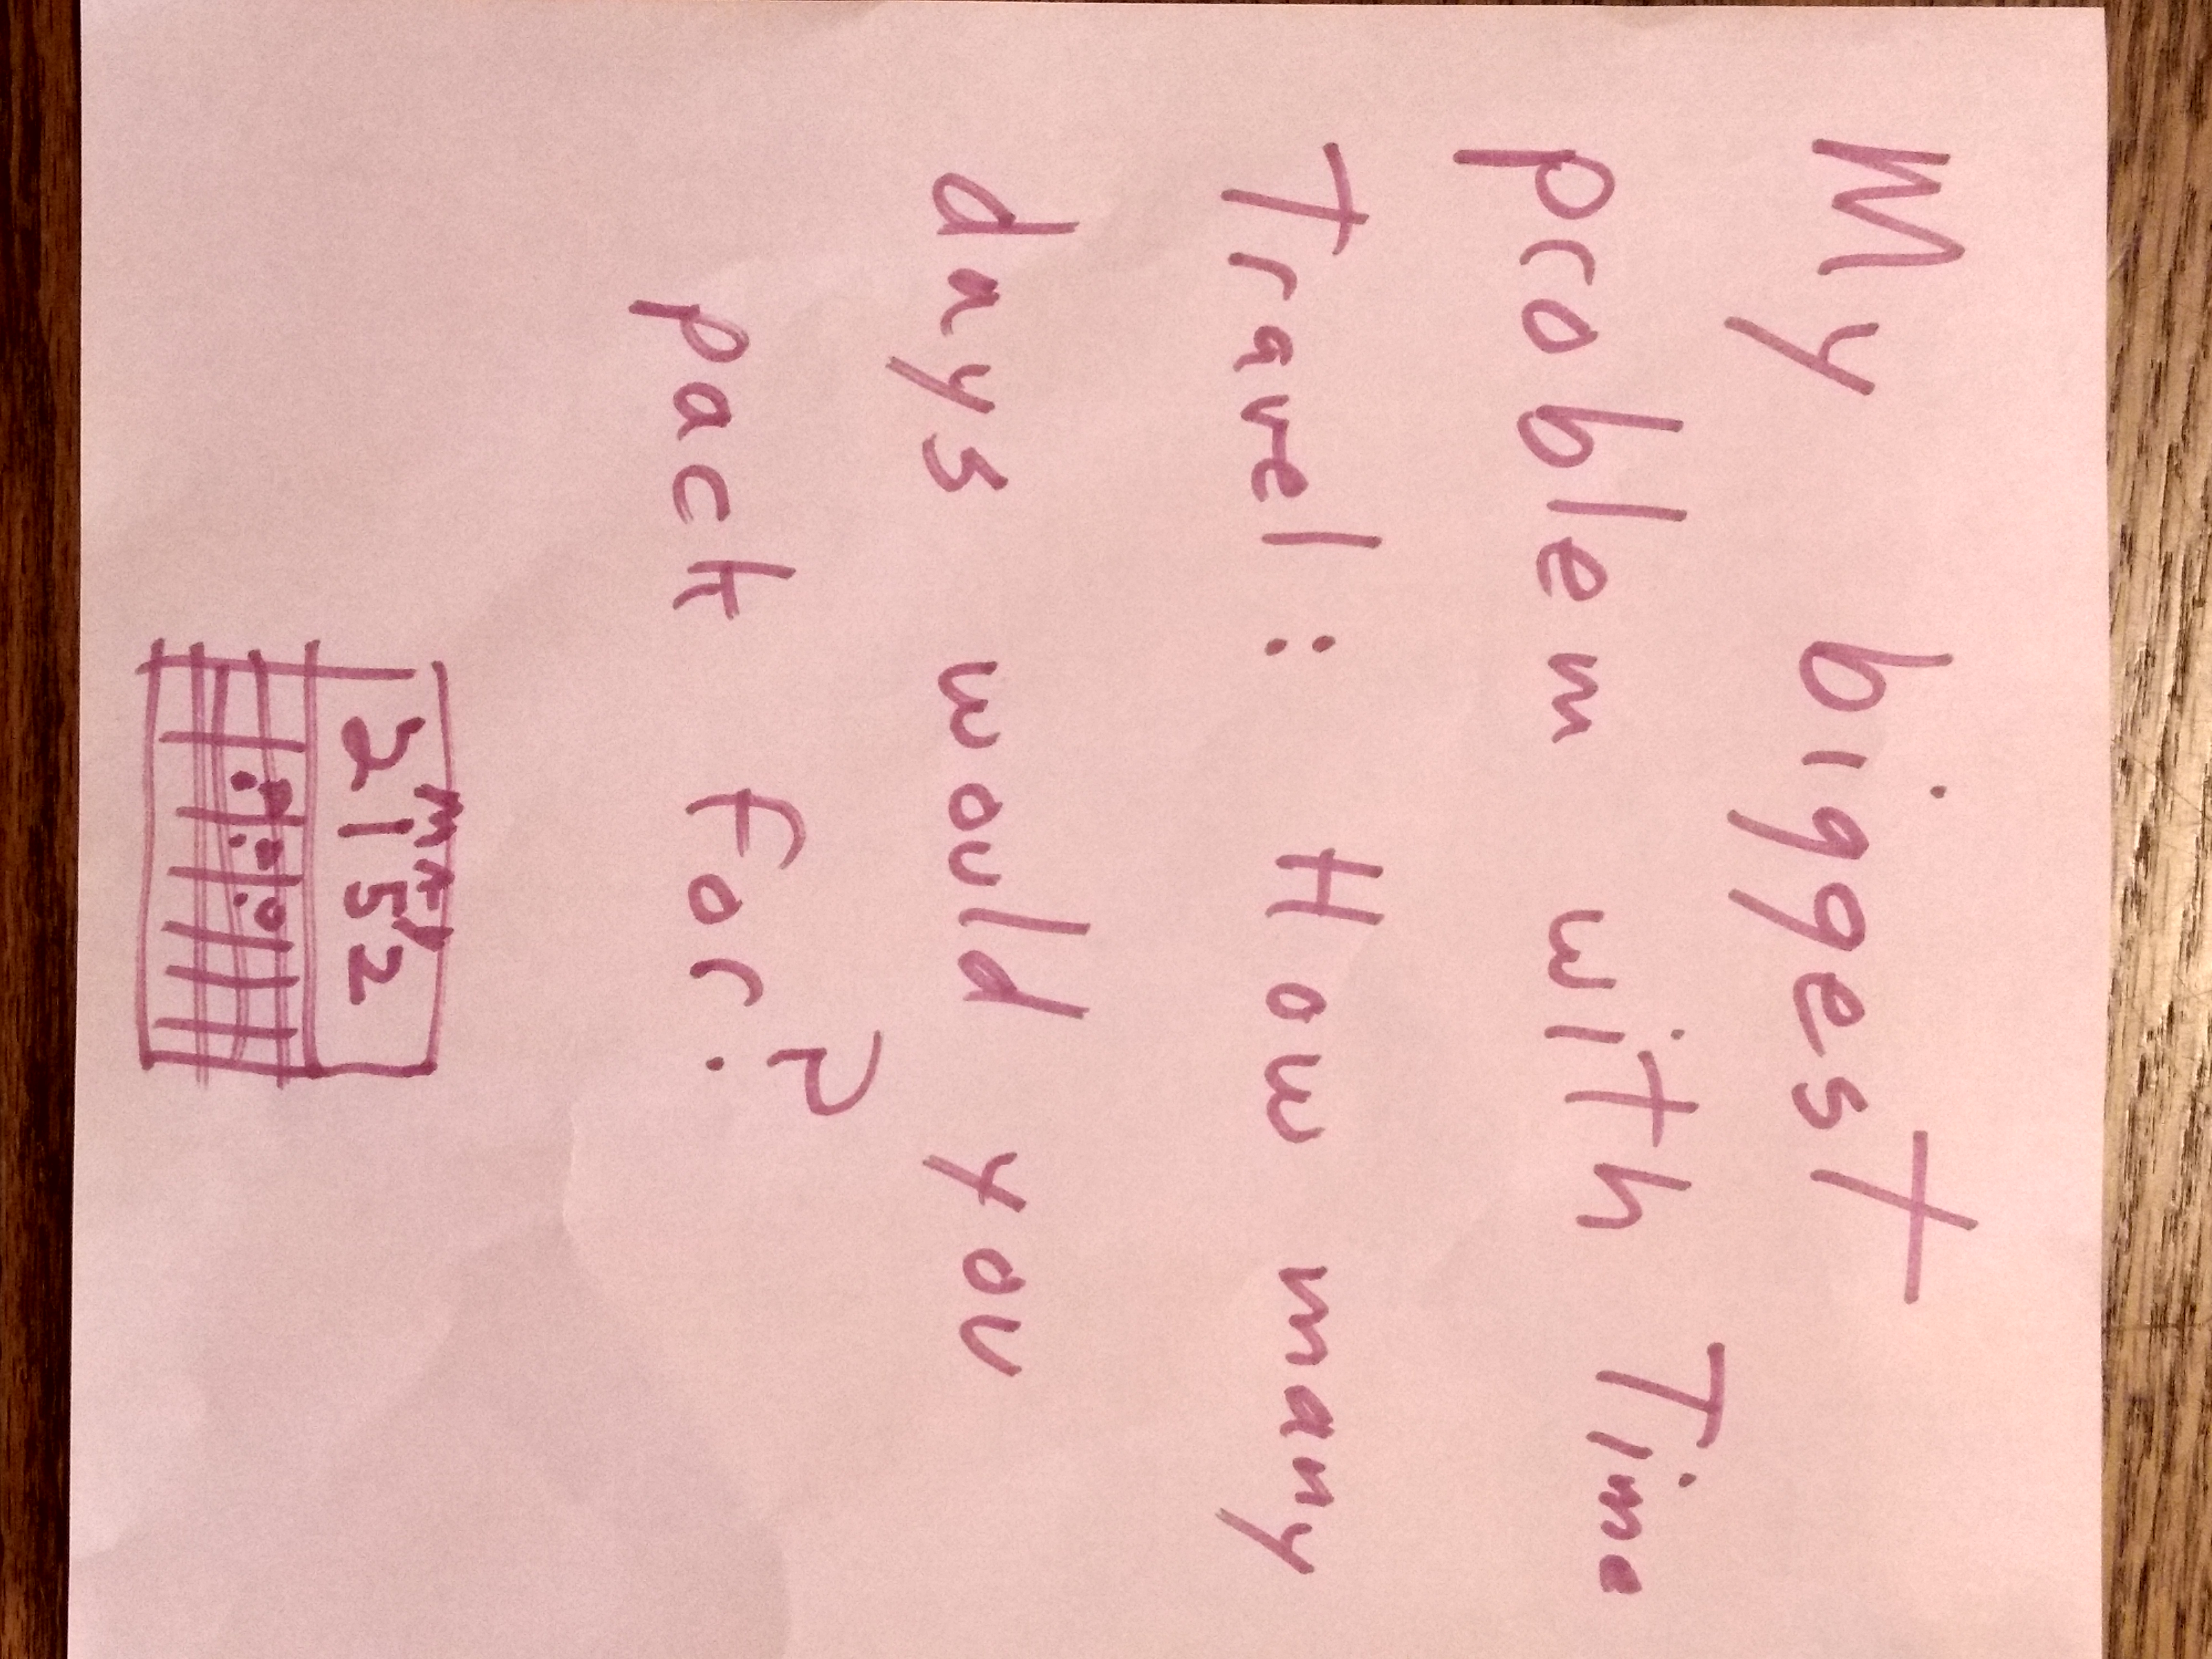 My biggest
problem with Time
Travel: How many
days would you
pack for?
May
2152